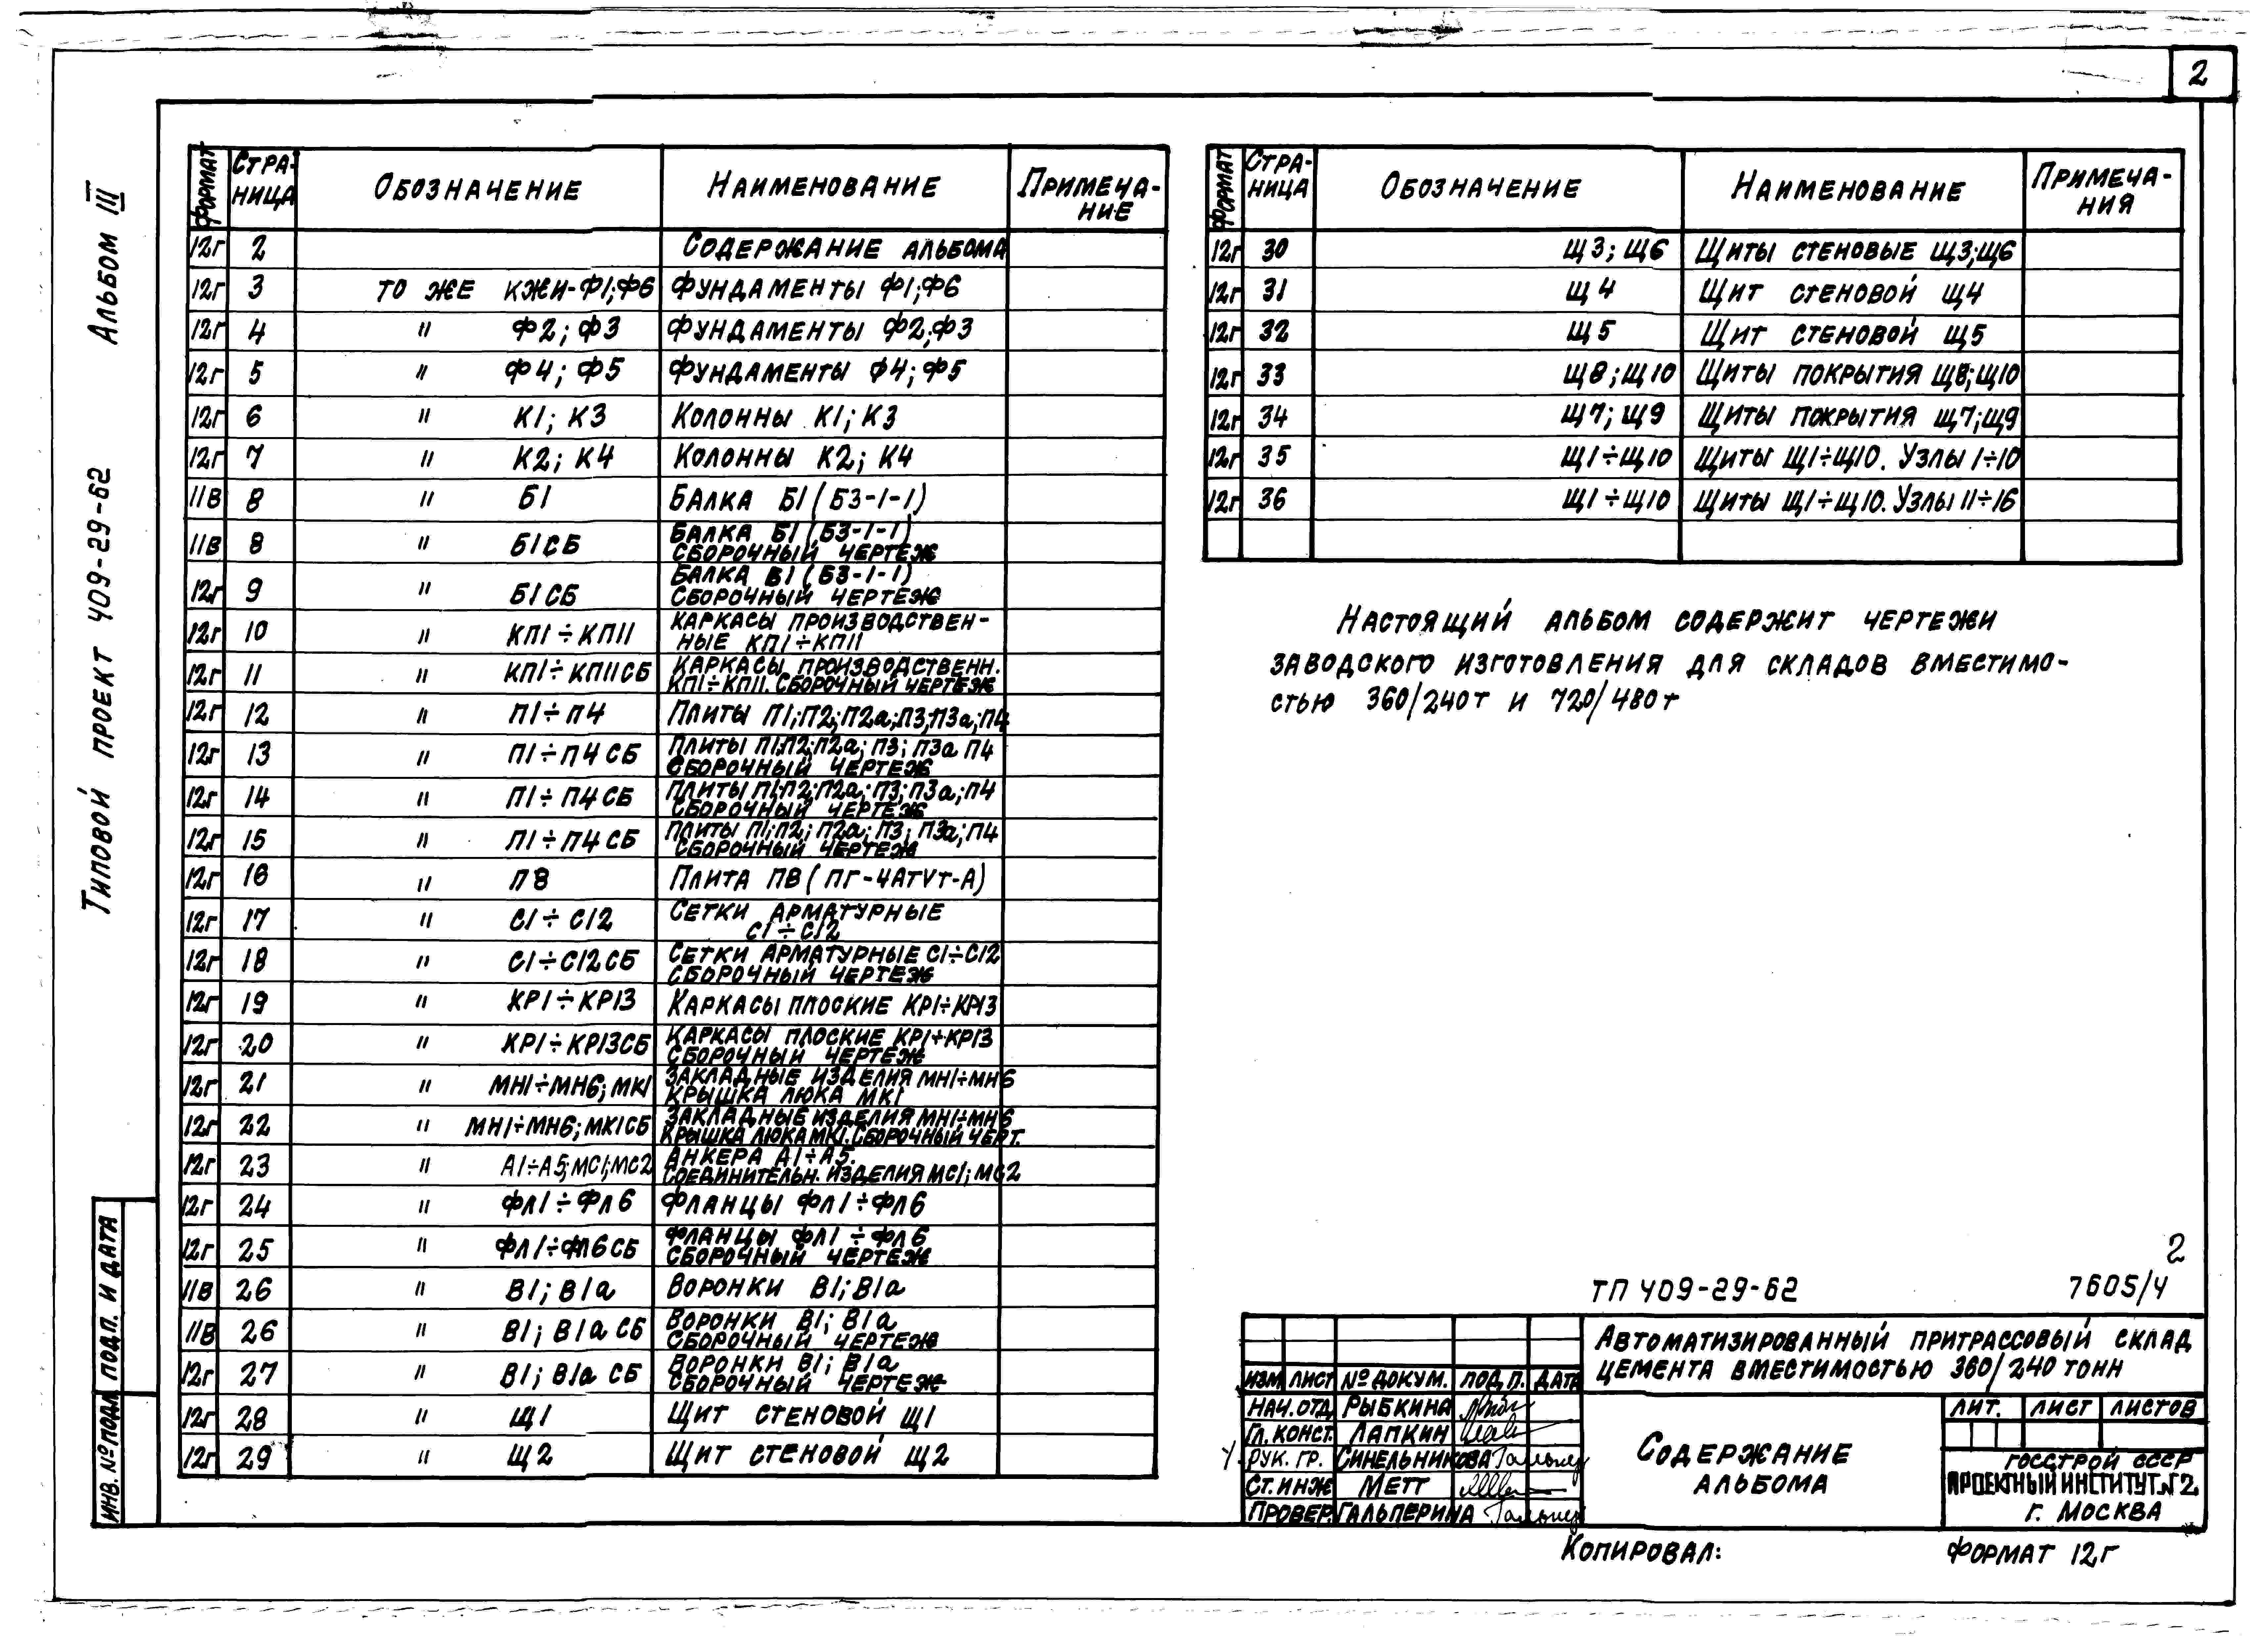 2
Типовой проект 409-29-62 Альбом III
Формат Стра- Обозначение Наименование Примеча-
ница ние
12г 2 Содержание альбома
12г 3 то же КЖИ-Ф1;Ф6 Фундаменты Ф1;Ф6
12г 4 " Ф2; Ф3 Фундаменты Ф2;Ф3
12г 5 " Ф4; Ф5 Фундаменты Ф4; Ф5
12г 6 " К1; К3 Колонны К1; К3
12г 7 " К2; К4 Колонны К2; К4
11в 8 " Б1 Балка Б1 (Б3-1-1)
11в 8 " Б1СБ Балка Б1 (Б3-1-1)
сборочный чертеж
12г 9 " Б1СБ Балка Б1 (Б3-1-1)
сборочный чертеж
12г 10 " КП1÷КП11 Каркасы производствен-
ные КП1÷КП11
12г 11 " КП1÷КП11СБ Каркасы производственн.
КП1÷КП11. Сборочный чертеж
12г 12 " П1÷П4 Плиты П1;П2;П2а;П3;П3а;П4
12г 13 " П1÷П4 СБ Плиты П1;П2;П2а; П3; П3а П4
сборочный чертеж
12г 14 " П1÷П4 СБ Плиты П1;П2;П2а;П3;П3а;П4
сборочный чертеж
12г 15 " П1÷П4 СБ Плиты П1;П2; П2а; П3; П3а;П4
сборочный чертеж
12г 16 " П8 Плита П8 (ПГ-4АТVТ-А)
12г 17 " С1÷С12 Сетки арматурные
С1÷С12
12г 18 " С1÷С12СБ Сетки арматурные С1÷С12
сборочный чертеж
12г 19 " КР1÷КР13 Каркасы плоские КР1÷КР13
12г 20 " КР1÷КР13СБ Каркасы плоские КР1÷КР13
сборочный чертеж
12г 21 " МН1÷МН6; МК1 Закладные изделия МН1÷МН6
крышка люка МК1
12г 22 " МН1÷МН6; МК1СБ Закладные изделия МН1÷МН6
крышка люка МК1. Сборочный черт.
12г 23 " А1÷А5;МС1;МС2 Анкера А1÷А5.
Соединительн. изделия МС1; МС2
12г 24 " ФЛ1÷ФЛ6 Фланцы ФЛ1÷ФЛ6
12г 25 " ФЛ1÷ФЛ6 СБ Фланцы ФЛ1÷ФЛ6
сборочный чертеж
11в 26 " В1; В1а Воронки В1; В1а
11в 26 " В1; В1а СБ Воронки В1; В1а
сборочный чертеж
12г 27 " В1; В1а СБ Воронки В1; В1а
сборочный чертеж
12г 28 " Щ1 Щит стеновой Щ1
12г 29 " Щ2 Щит стеновой Щ2
Формат Стра- Обозначение Наименование Примеча-
ница ния
12г 30 Щ3; Щ6 Щиты стеновые Щ3;Щ6
12г 31 Щ4 Щит стеновой Щ4
12г 32 Щ5 Щит стеновой Щ5
12г 33 Щ8; Щ10 Щиты покрытия Щ8;Щ10
12г 34 Щ7; Щ9 Щиты покрытия Щ7;Щ9
12г 35 Щ1÷Щ10 Щиты Щ1÷Щ10. Узлы 1÷10
12г 36 Щ1÷Щ10 Щиты Щ1÷Щ10. Узлы 11÷16
Настоящий альбом содержит чертежи
заводского изготовления для складов вместимо-
стью 360/240т и 720/480т
2
ТП 409-29-62 7605/4
Автоматизированный притрассовый склад
цемента вместимостью 360/240 тонн
Изм Лист № докум. Подп. Дата
Нач. отд. Рыбкина
Гл. конст. Лапкин
Рук. гр. Синельникова
Ст. инж Метт
Провер. Гальперина
Содержание
альбома
Лит. Лист Листов
Госстрой СССР
Проектный институт №2
г. Москва
Инв. № подл Подп. и дата
Копировал: Формат 12г